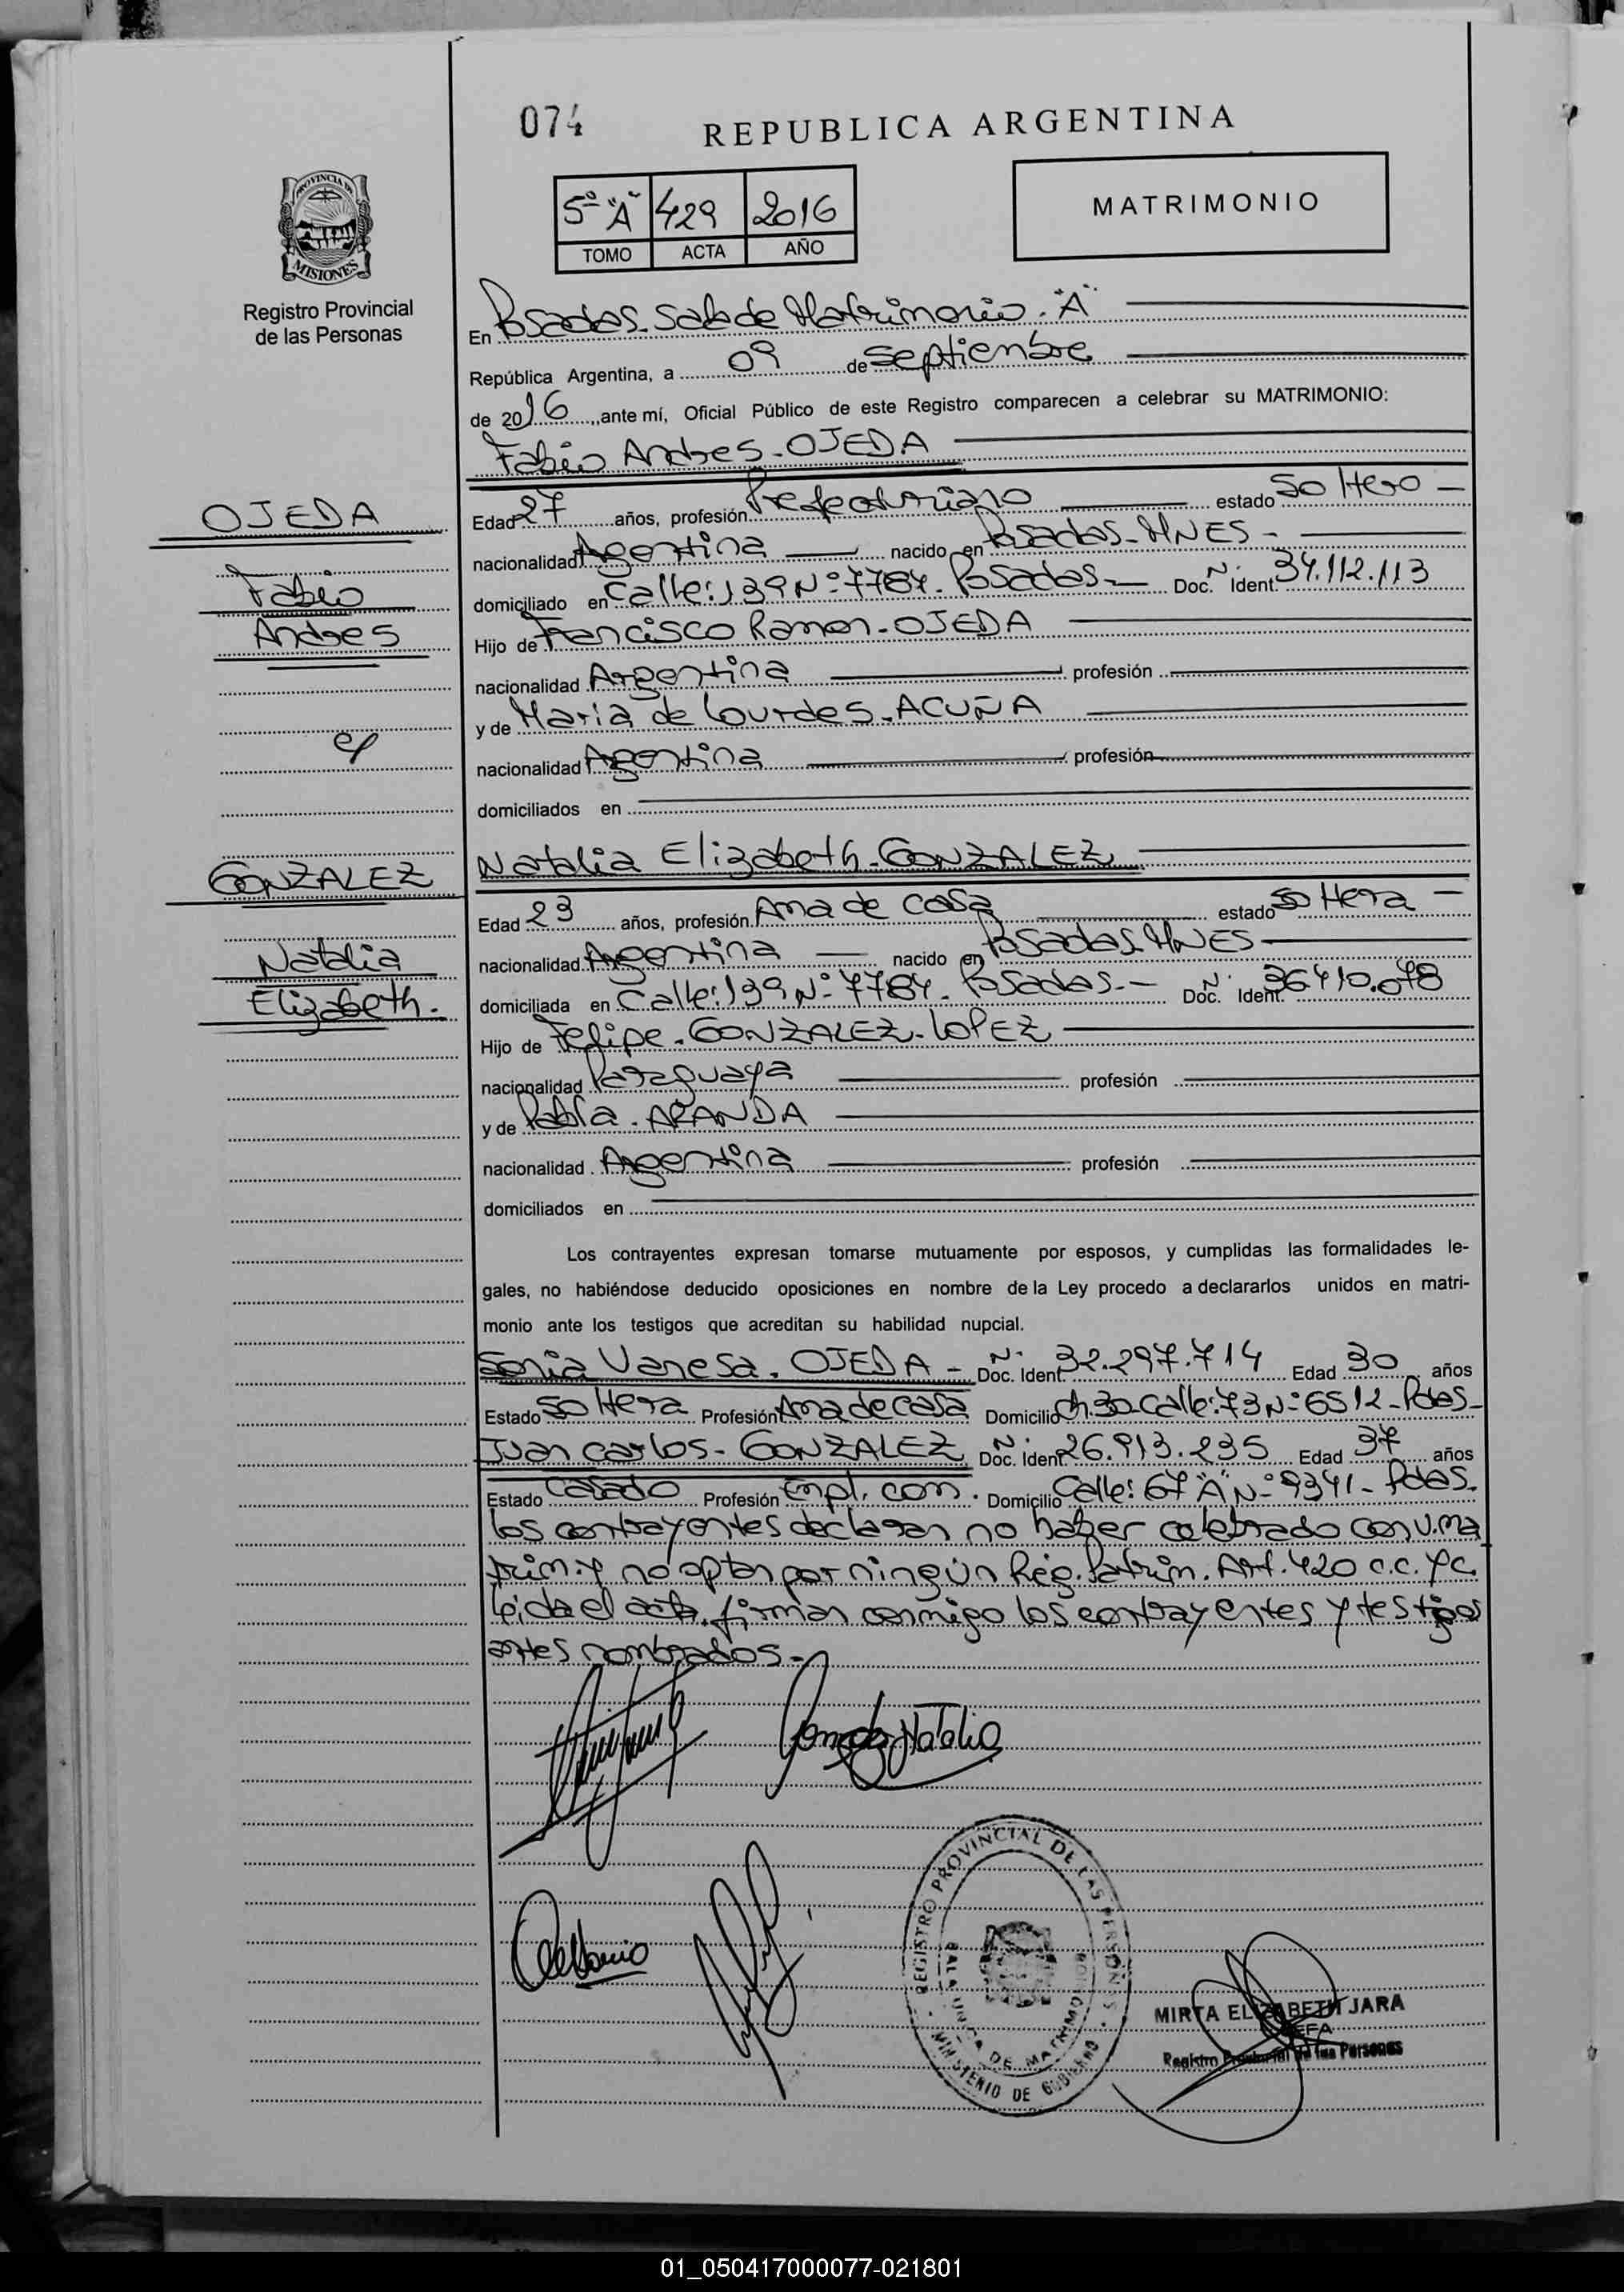 074
REPUBLICA ARGENTINA
PROVINCIA DE
MISIONES
Registro Provincial
de las Personas
5º "A" 429 2016
TOMO ACTA AÑO
MATRIMONIO
En Posadas. Sala de Matrimonio. "A"
República Argentina, a 09 de Septiembre
de 2016, ante mí, Oficial Público de este Registro comparecen a celebrar su MATRIMONIO:
Fabio Andres - OJEDA
OJEDA
Fabio
Andres
Edad 27 años, profesión Prefecturiano estado Soltero -
nacionalidad Argentina nacido en Posadas - MNES -
domiciliado en Calle: 139 Nº 7784. Posadas - Doc. Nº Ident. 34.112.113
Hijo de Francisco Ramon - OJEDA
nacionalidad Argentina profesión
y de Maria de Lourdes - ACUÑA
nacionalidad Argentina profesión
domiciliados en
Natalia Elizabeth - GONZALEZ
GONZALEZ
Natalia
Elizabeth.
Edad 23 años, profesión Ama de casa estado Soltera -
nacionalidad Argentina nacido en Posadas MNES -
domiciliada en Calle: 139 Nº 7784. Posadas. - Doc. Nº Ident. 36410.078
Hijo de Felipe - GONZALEZ - LOPEZ
nacionalidad Paraguaya profesión
y de Pabla - ARANDA
nacionalidad Argentina profesión
domiciliados en
Los contrayentes expresan tomarse mutuamente por esposos, y cumplidas las formalidades le-
gales, no habiéndose deducido oposiciones en nombre de la Ley procedo a declararlos unidos en matri-
monio ante los testigos que acreditan su habilidad nupcial.
Sonia Vanesa. OJEDA - Doc. Nº Ident 32.297.714 Edad 30 años
Estado Soltera Profesión Ama de casa Domicilio Ch. 30 Calle: 73 Nº 6512 - Pdas -
Juan Carlos - GONZALEZ Doc. Nº Ident 26.913.235 Edad 37 años
Estado Casado Profesión Empl. com. Domicilio Calle: 67 "A" Nº 9341 - Pdas.
los contrayentes declaran no haber celebrado conv. ma
trim. y no optan por ningún Rég. Patrim. Art. 420 c.c. y c.
leída el acta, firman conmigo los contrayentes y testigos
antes nombrados. -
Gonzalez Natalia
REGISTRO PROVINCIAL DE LAS PERSONAS
SALA UNICA DE MATRIMONIOS
MINISTERIO DE GOBIERNO
MIRTA ELIZABETH JARA
JEFA
Registro Provincial de las Personas
01_050417000077-021801